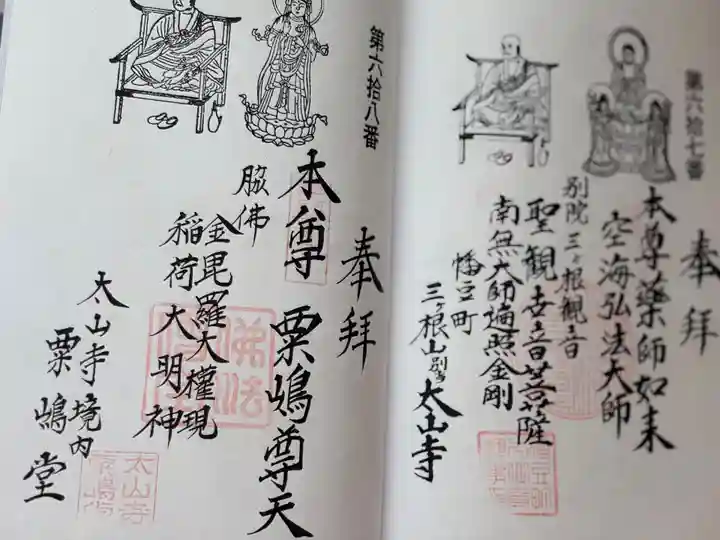 第六拾七番
奉拜
本尊藥師如来
空海弘法大師
別院三ヶ根観音
聖観世音菩薩
南無大師遍照金剛
幡豆町
三ヶ根山別当太山寺
第六拾八番
奉拜
本尊 粟嶋尊天
脇佛
金毘羅大權現
稲荷大明神
太山寺境内
粟嶋堂
佛法
太山寺